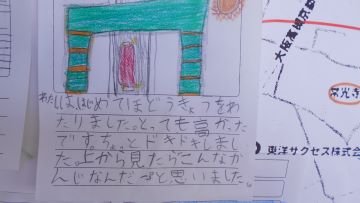 わたしは、はじめてまどうきょうをわ
たりました。とっても高かった
です。ちょっとドキドキしまし
た。上から見たらこんなか
んじなんだってと思いました。
大阪高槻京都
寂光寺
東洋サクセス株式